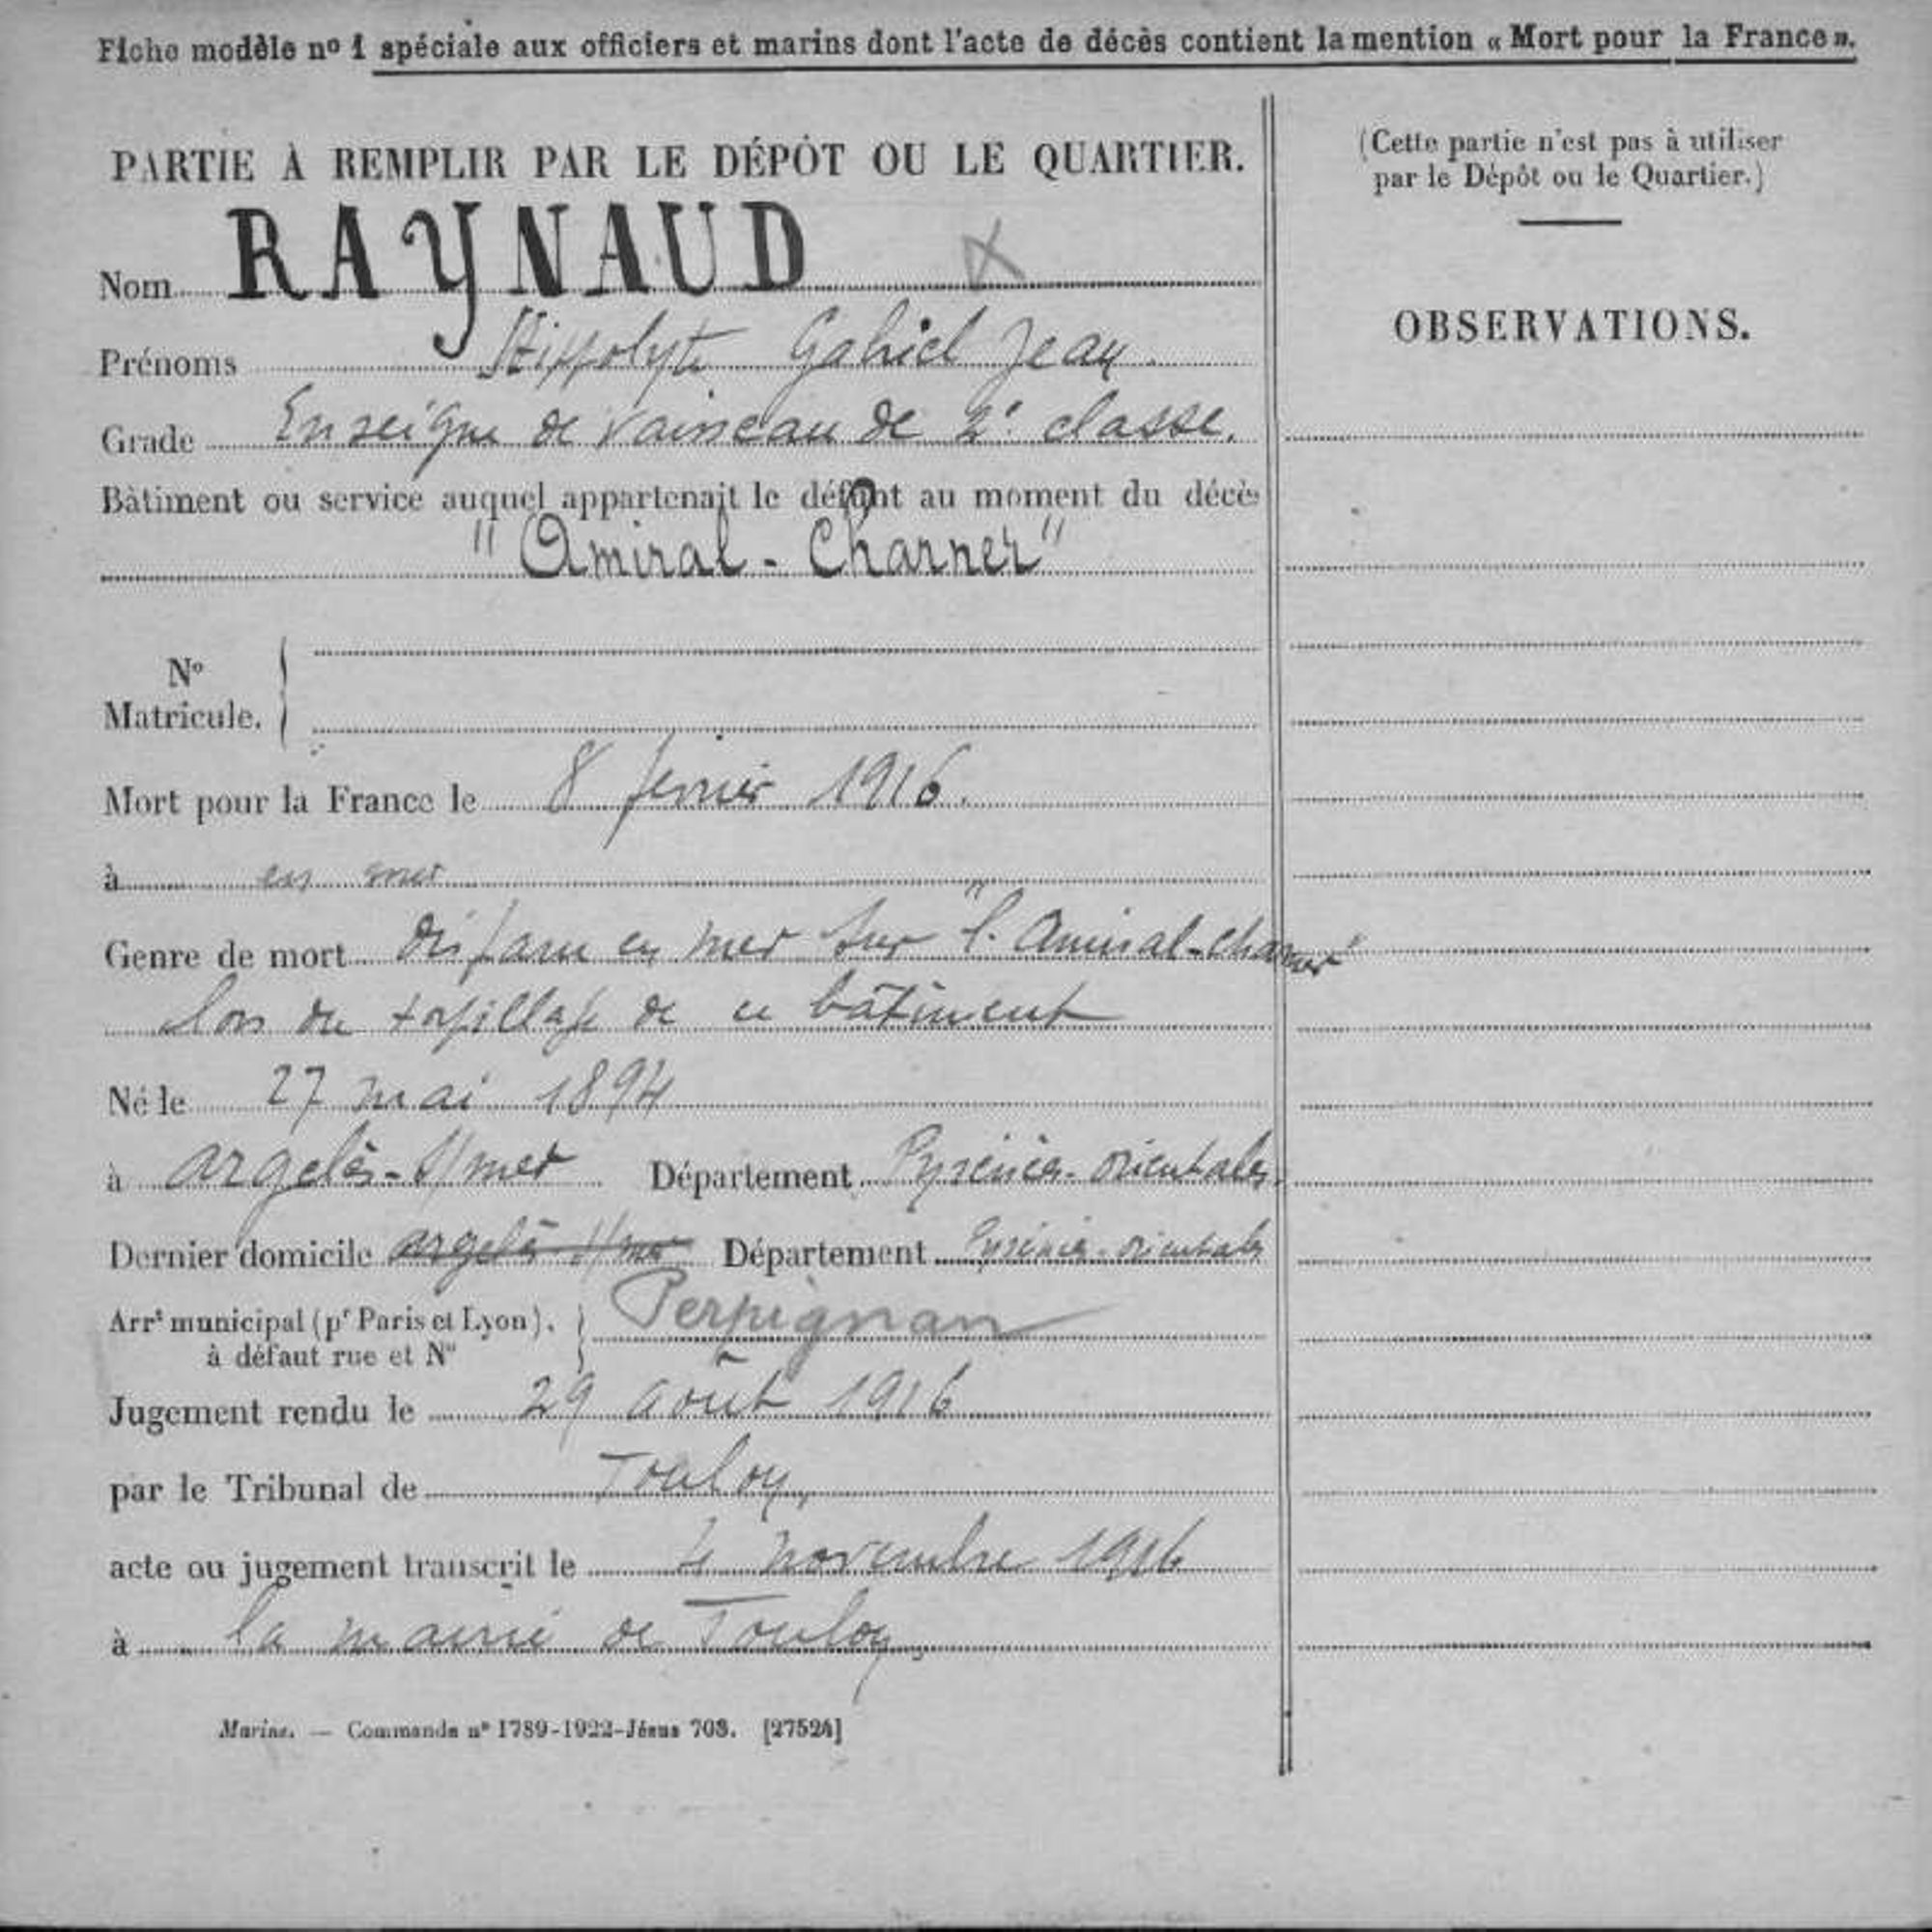 Fiche modèle nº 1 spéciale aux officiers et marins dont l'acte de décès contient la mention « Mort pour la France ».
PARTIE À REMPLIR PAR LE DÉPÔT OU LE QUARTIER.
Nom RAYNAUD
Prénoms Hippolyte Gabriel Jean
Grade Enseigne de vaisseau de 2e classe.
Bâtiment ou service auquel appartenait le défunt au moment du décès
"Amiral-Charner"
Nº
Matricule.
Mort pour la France le 8 février 1916.
à en mer
Genre de mort disparu en mer sur "l'Amiral-Charner"
lors du torpillage de ce bâtiment
Né le 27 mai 1894
à Argelès-s/mer Département Pyrénées-orientales.
Dernier domicile Argelès-s/mer Département Pyrénées-orientales
Arrt municipal (pr Paris et Lyon). Perpignan
à défaut rue et Nº
Jugement rendu le 29 août 1916
par le Tribunal de Toulon
acte ou jugement transcrit le 4 novembre 1916
à la mairie de Toulon
Marine. — Commande nº 1789-1922-Jésus 708. [27524]
(Cette partie n'est pas à utiliser
par le Dépôt ou le Quartier.)
OBSERVATIONS.